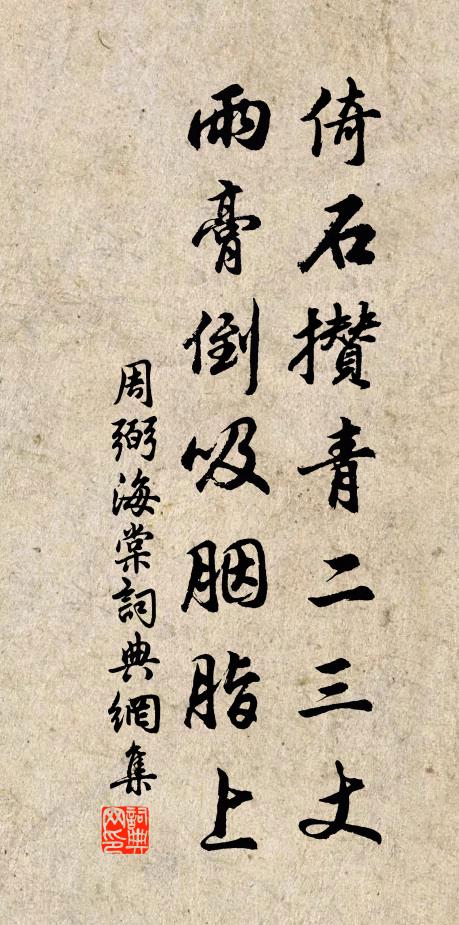 倚石攢青二三丈
雨膏倒吸胭脂上
周弼海棠詞典網集
詞典网印